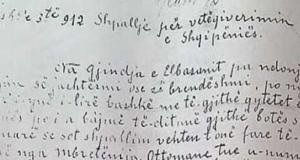 3të 912 Shpallje për vetëqiverimin
e Shqipëniës.
Na gjindja e Elbasanit pa ndonj
së jashtërmi ose së brendëshmi, po në
i-lirë bashkë me të-gjithë qytetet
po i-a bâjmë të-ditun gjithë botës s
se sot shpallim vehten t'onë fare të-
nga mbretënija Ottomane tue u-mun